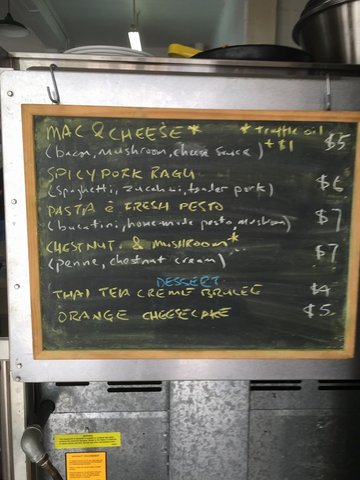 MAC & CHEESE * * Truffle oil + $1 $5
(bacon, mushroom, cheese sauce)
SPICY PORK RAGU $6
(spaghetti, zucchini, tender pork)
PASTA è FRESH PESTO $7
(bucatini, homemade pesto, mushroom)
CHESTNUT & MUSHROOM * $7
(penne, chestnut cream)
DESSERT
THAI TEA CREME BRULEE $4
ORANGE CHEESECAKE $5